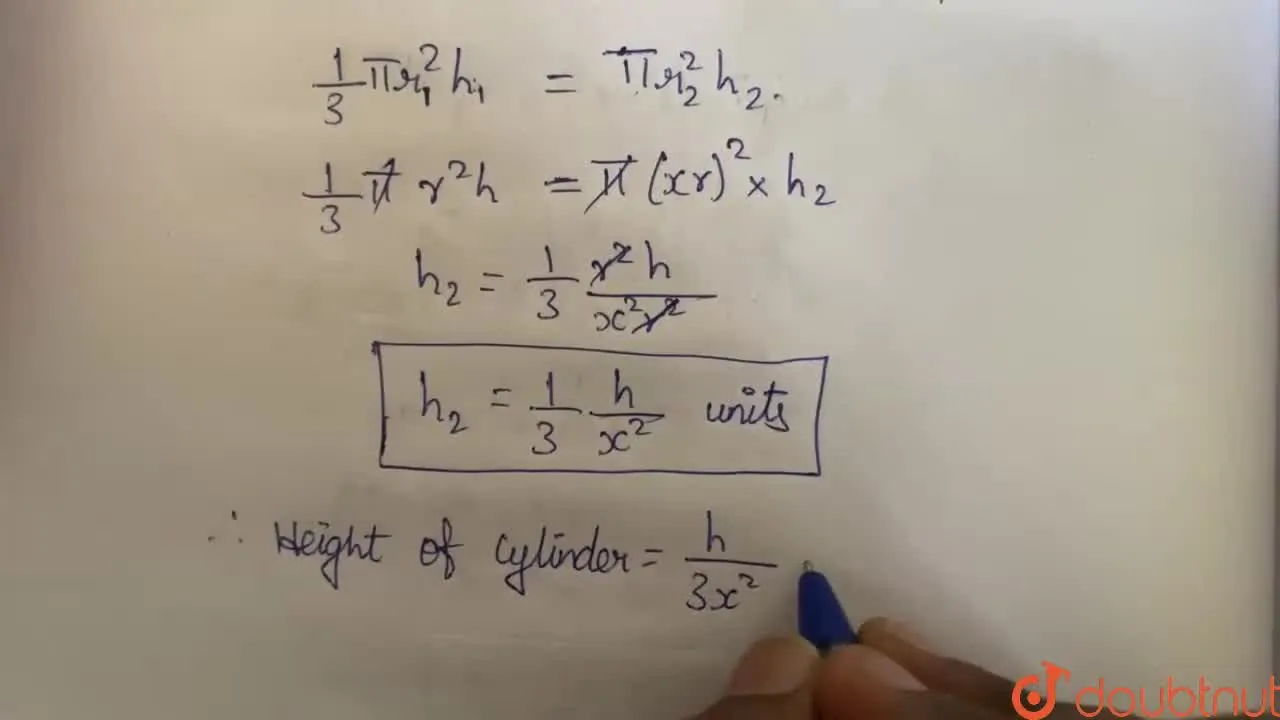 1/3 πr₁²h₁ = πr₂²h₂.
1/3 π r²h = π (xr)² × h₂
h₂ = 1/3 r²h/x²r²
h₂ = 1/3 h/x² units
∴ Height of cylinder = h/3x²
doubtnut